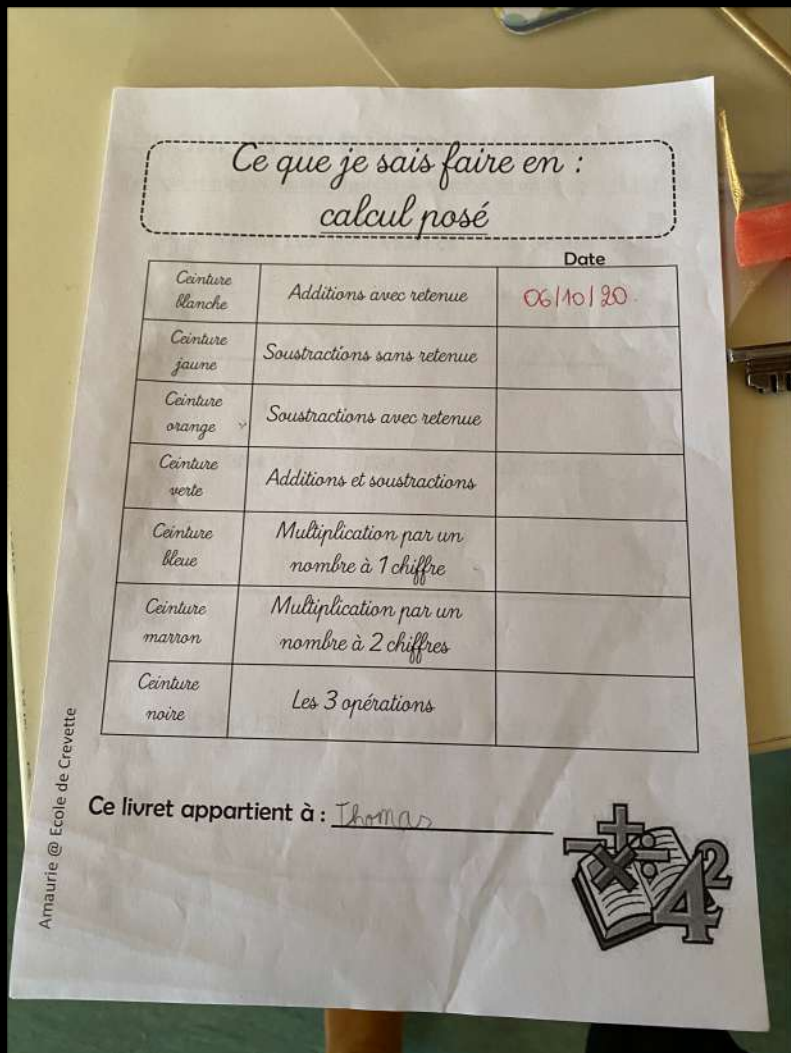 Ce que je sais faire en :
calcul posé
Date
Ceinture
blanche
Additions avec retenue
06/10/20
Ceinture
jaune
Soustractions sans retenue
Ceinture
orange
Soustractions avec retenue
Ceinture
verte
Additions et soustractions
Ceinture
bleue
Multiplication par un
nombre à 1 chiffre
Ceinture
marron
Multiplication par un
nombre à 2 chiffres
Ceinture
noire
Les 3 opérations
Ce livret appartient à : Thomas
Amaurie @ Ecole de Crevette
4²